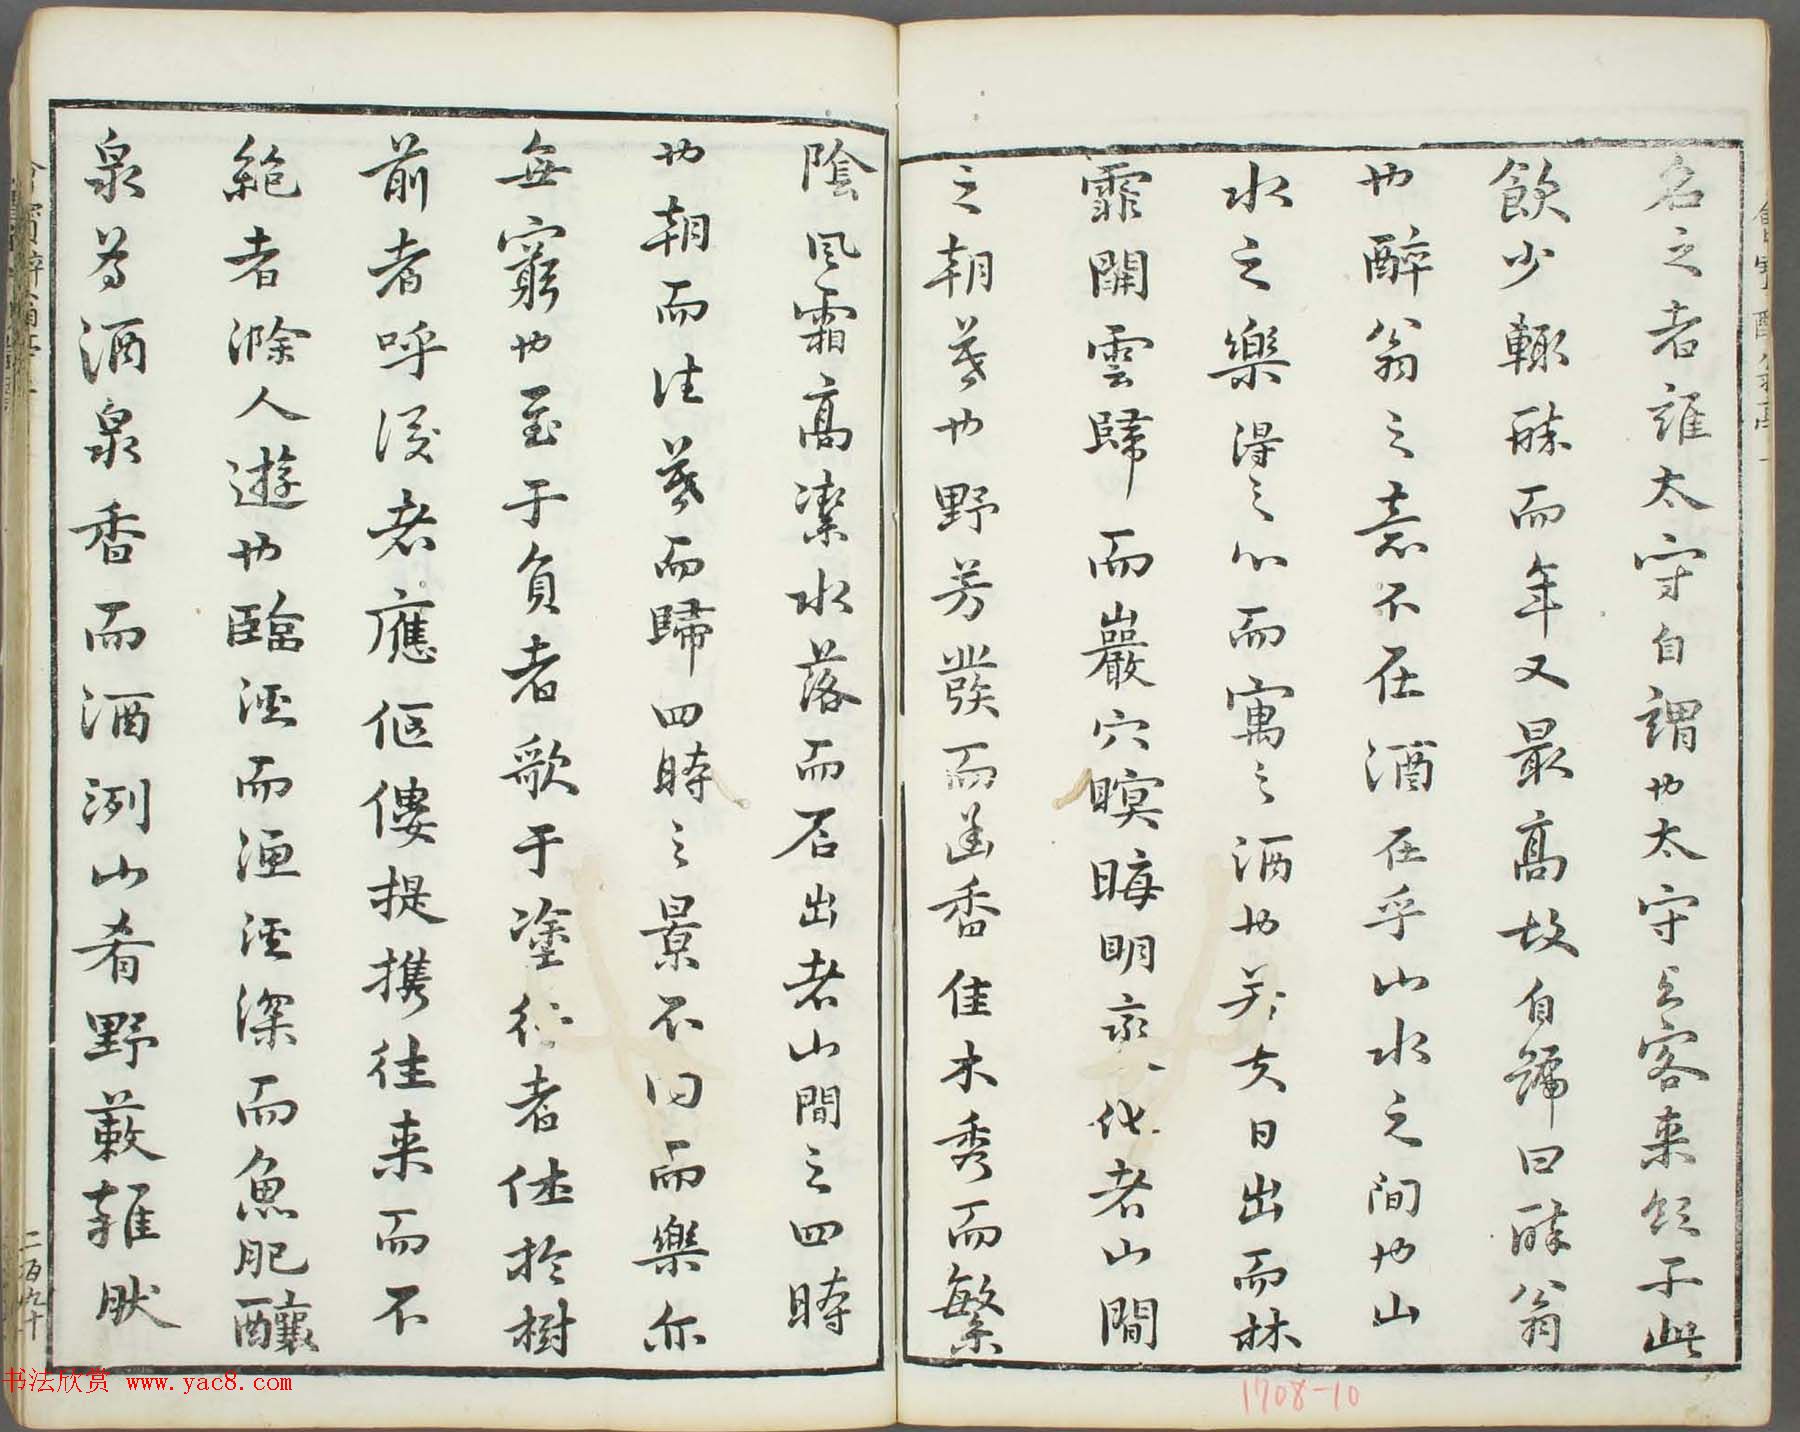 名之者誰太守自謂也太守与客来飲于此
飲少輒醉而年又最高故自號曰醉翁
也醉翁之意不在酒在乎山水之间也山
水之樂得之心而寓之酒也若夫日出而林
霏開雲歸而巖穴暝晦明變化者山間
之朝暮也野芳發而幽香佳木秀而繁
陰風霜高潔水落而石出者山間之四時
也朝而往暮而歸四時之景不同而樂亦
無窮也至于負者歌于塗行者休於樹
前者呼後者應傴僂提携往来而不
絶者滁人遊也臨溪而漁溪深而魚肥釀
泉為酒泉香而酒洌山肴野蔌雜然
二百九十
书法欣赏 www.yac8.com
1708-10